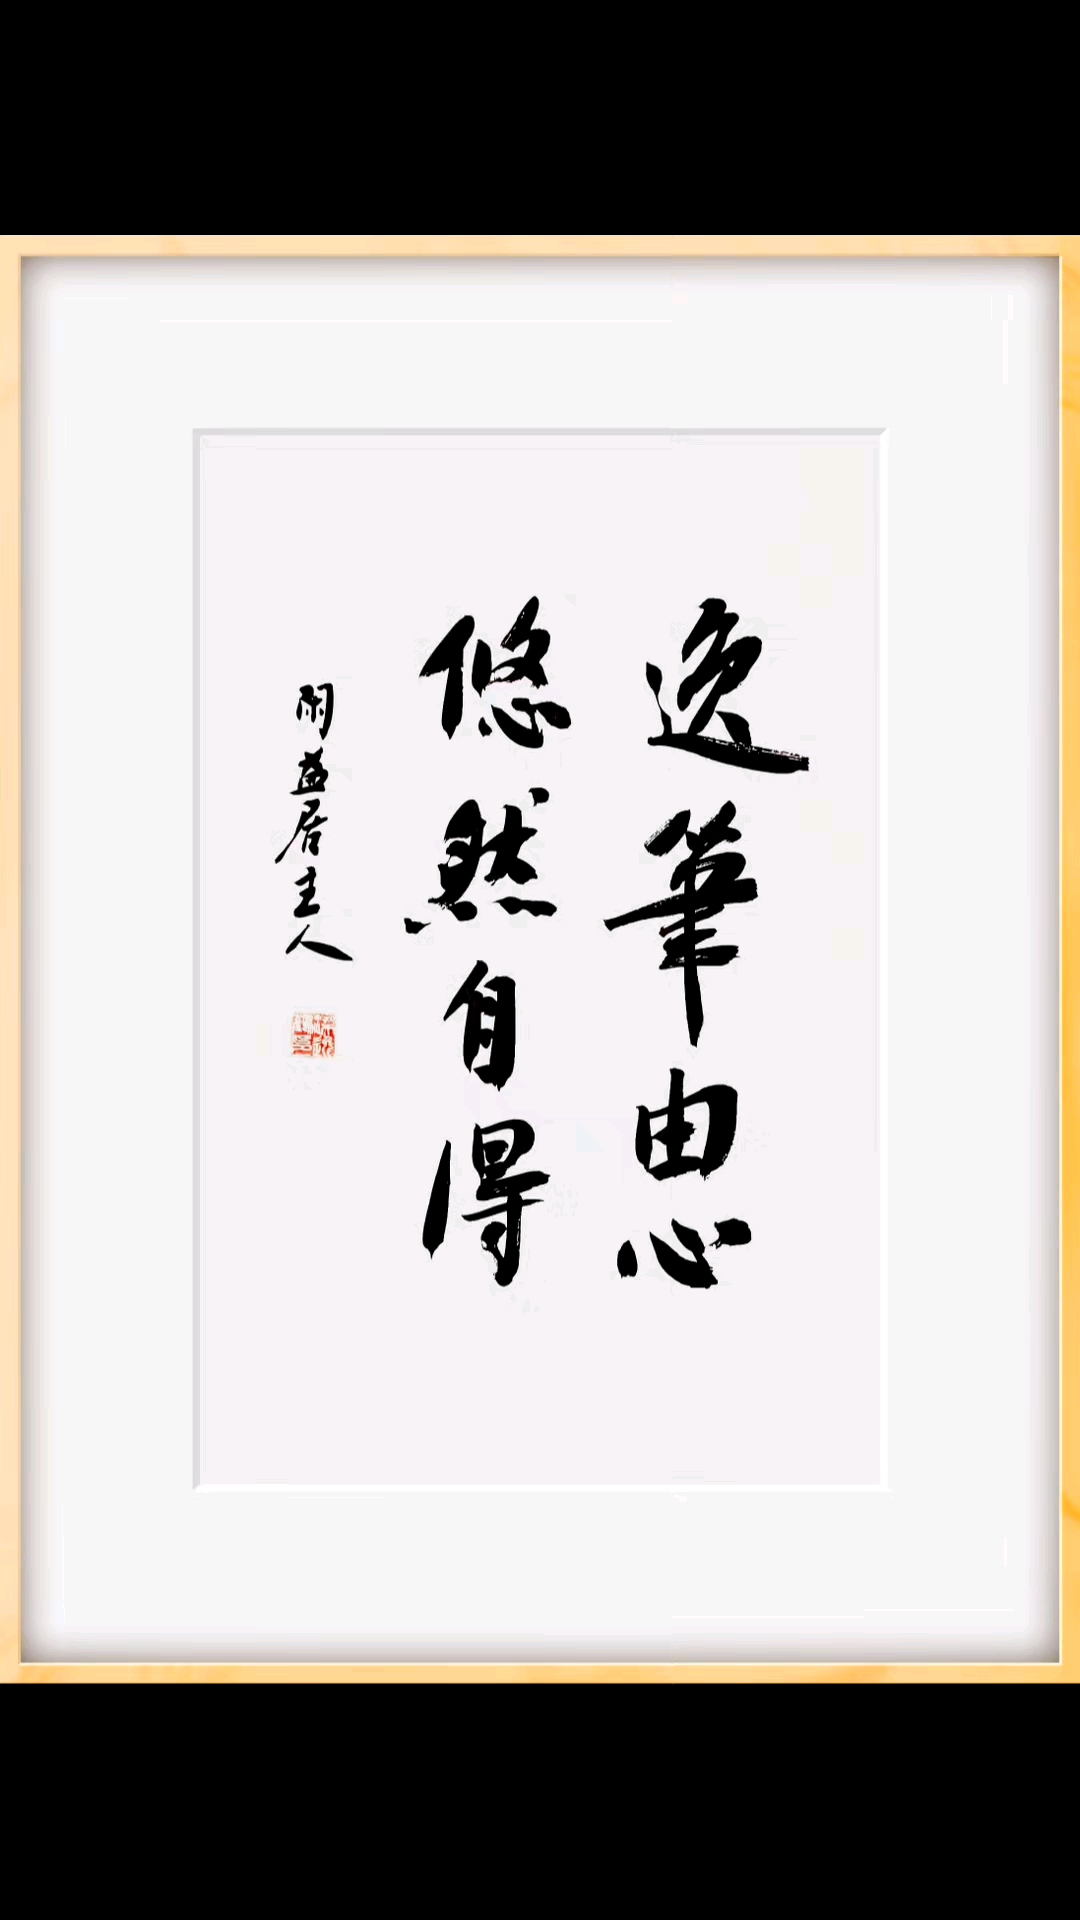 逸筆由心
悠然自得
闲益居主人